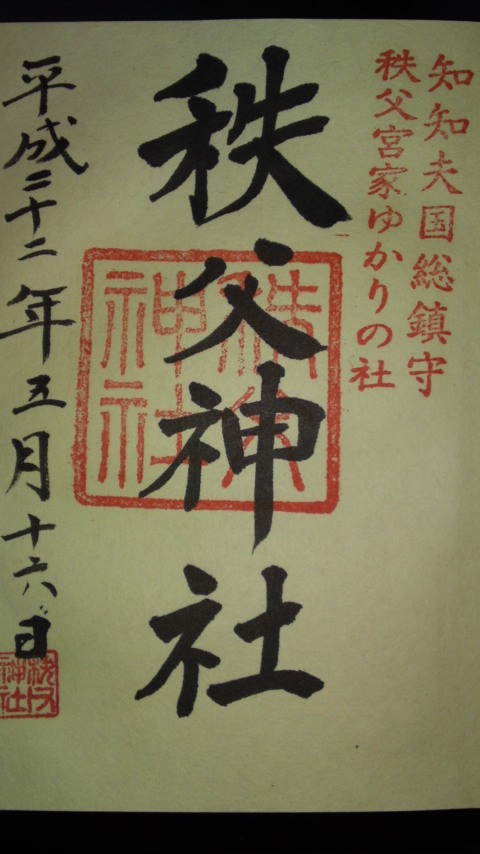 知知夫国総鎮守
秩父宮家ゆかりの社
秩父神社
秩父神社
平成二十二年五月十六日
秩父神社